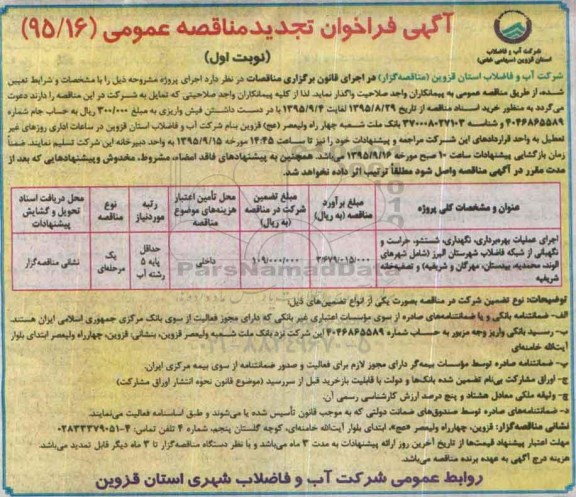 آگهی فراخوان تجدیدمناقصه عمومی (۹۵/۱۶)
(نوبت اول)
شرکت آب و فاضلاب
استان قزوین (سهامی خاص)
شرکت آب و فاضلاب استان قزوین (مناقصه‌گزار) در اجرای قانون برگزاری مناقصات در نظر دارد اجرای پروژه مشروحه ذیل را با مشخصات و شرایط تعیین
شده، از طریق مناقصه عمومی به پیمانکاران واجد صلاحیت واگذار نماید. لذا از کلیه پیمانکاران واجد صلاحیتی که تمایل به شرکت در این مناقصه را دارند دعوت
می‌گردد به منظور خرید اسناد مناقصه از تاریخ ۱۳۹۵/۸/۲۹ لغایت ۱۳۹۵/۹/۴ با در دست داشتن فیش واریزی به مبلغ ۳۰۰/۰۰۰ ریال به حساب جام شماره
۴۰۴۶۸۶۵۵۸۹ و شناسه ۳۷۰۰۰۸۰۳۷۱۰۳ بانک ملت شعبه چهار راه ولیعصر (عج) قزوین بنام شرکت آب و فاضلاب استان قزوین در ساعات اداری روزهای غیر
تعطیل به واحد قراردادهای این شرکت مراجعه و پیشنهادات خود را نیز تا ساعت ۱۴:۴۵ مورخه ۱۳۹۵/۹/۱۵ به واحد دبیرخانه این شرکت تسلیم نمایند. ضمناً
زمان بازگشایی پیشنهادات ساعت ۱۰ صبح مورخه ۱۳۹۵/۹/۱۶ می‌باشد. همچنین به پیشنهادهای فاقد امضاء، مشروط، مخدوش و پیشنهادهایی که بعد از
مدت مقرر در آگهی مناقصه واصل شود مطلقاً ترتیب اثر داده نخواهد شد.
عنوان و مشخصات کلی پروژه
مبلغ برآورد مناقصه (به ریال)
مبلغ تضمین شرکت در مناقصه (به ریال)
محل تأمین اعتبار هزینه‌های موضوع مناقصه
رتبه موردنیاز
نوع مناقصه
محل دریافت اسناد تحویل و گشایش پیشنهادات
اجرای عملیات بهره‌برداری، نگهداری، شستشو، حراست و
نگهبانی از شبکه فاضلاب شهرستان البرز (شامل شهرهای
الوند، محمدیه، بیدستان، مهرگان و شریفیه) و تصفیه‌خانه
شریفیه
۳/۶۷۹/۰۱۵/۰۰۰
۱۰۹/۰۰۰/۰۰۰
داخلی
حداقل پایه ۵ رشته آب
یک مرحله‌ای
نشانی مناقصه‌گزار
ParsNamadData
توضیحات: نوع تضمین شرکت در مناقصه بصورت یکی از انواع تضمین‌های ذیل:
الف- ضمانتنامه بانکی و یا ضمانتنامه‌های صادره از سوی مؤسسات اعتباری غیر بانکی که دارای مجوز فعالیت از سوی بانک مرکزی جمهوری اسلامی ایران هستند.
ب- رسید بانکی واریز وجه مزبور به حساب شماره ۴۰۴۶۸۶۵۵۸۹ این شرکت نزد بانک ملت شعبه ولیعصر قزوین، بنشانی: قزوین، چهارراه ولیعصر ابتدای بلوار
آیت‌الله خامنه‌ای
پ- ضمانتنامه صادره توسط مؤسسات بیمه‌گر دارای مجوز لازم برای فعالیت و صدور ضمانتنامه از سوی بیمه مرکزی ایران.
ج- اوراق مشارکت بی‌نام تضمین شده بانک‌ها و دولت با قابلیت بازخرید قبل از سررسید (موضوع قانون نحوه انتشار اوراق مشارکت)
چ- وثیقه ملکی معادل هشتاد و پنج درصد ارزش کارشناسی رسمی آن.
د- ضمانتنامه‌های صادره توسط صندوق‌های ضمانت دولتی که به موجب قانون تأسیس شده یا می‌شوند و طبق اساسنامه فعالیت می‌نمایند.
نشانی مناقصه‌گزار: قزوین، چهارراه ولیعصر «عج»، ابتدای بلوار آیت‌الله خامنه‌ای، کوچه گلستان پنجم، شماره ۴ تلفن تماس: ۴-۰۲۸۳۳۳۷۹۰۵۱
مهلت اعتبار پیشنهاد قیمت‌ها از تاریخ آخرین روز ارائه پیشنهادات به مدت ۳ ماه می‌باشد و با نظر دستگاه مناقصه‌گزار تا ۳ ماه دیگر قابل تمدید می‌باشد.
هزینه درج آگهی به عهده برنده مناقصه می‌باشد.
روابط عمومی شرکت آب و فاضلاب شهری استان قزوین